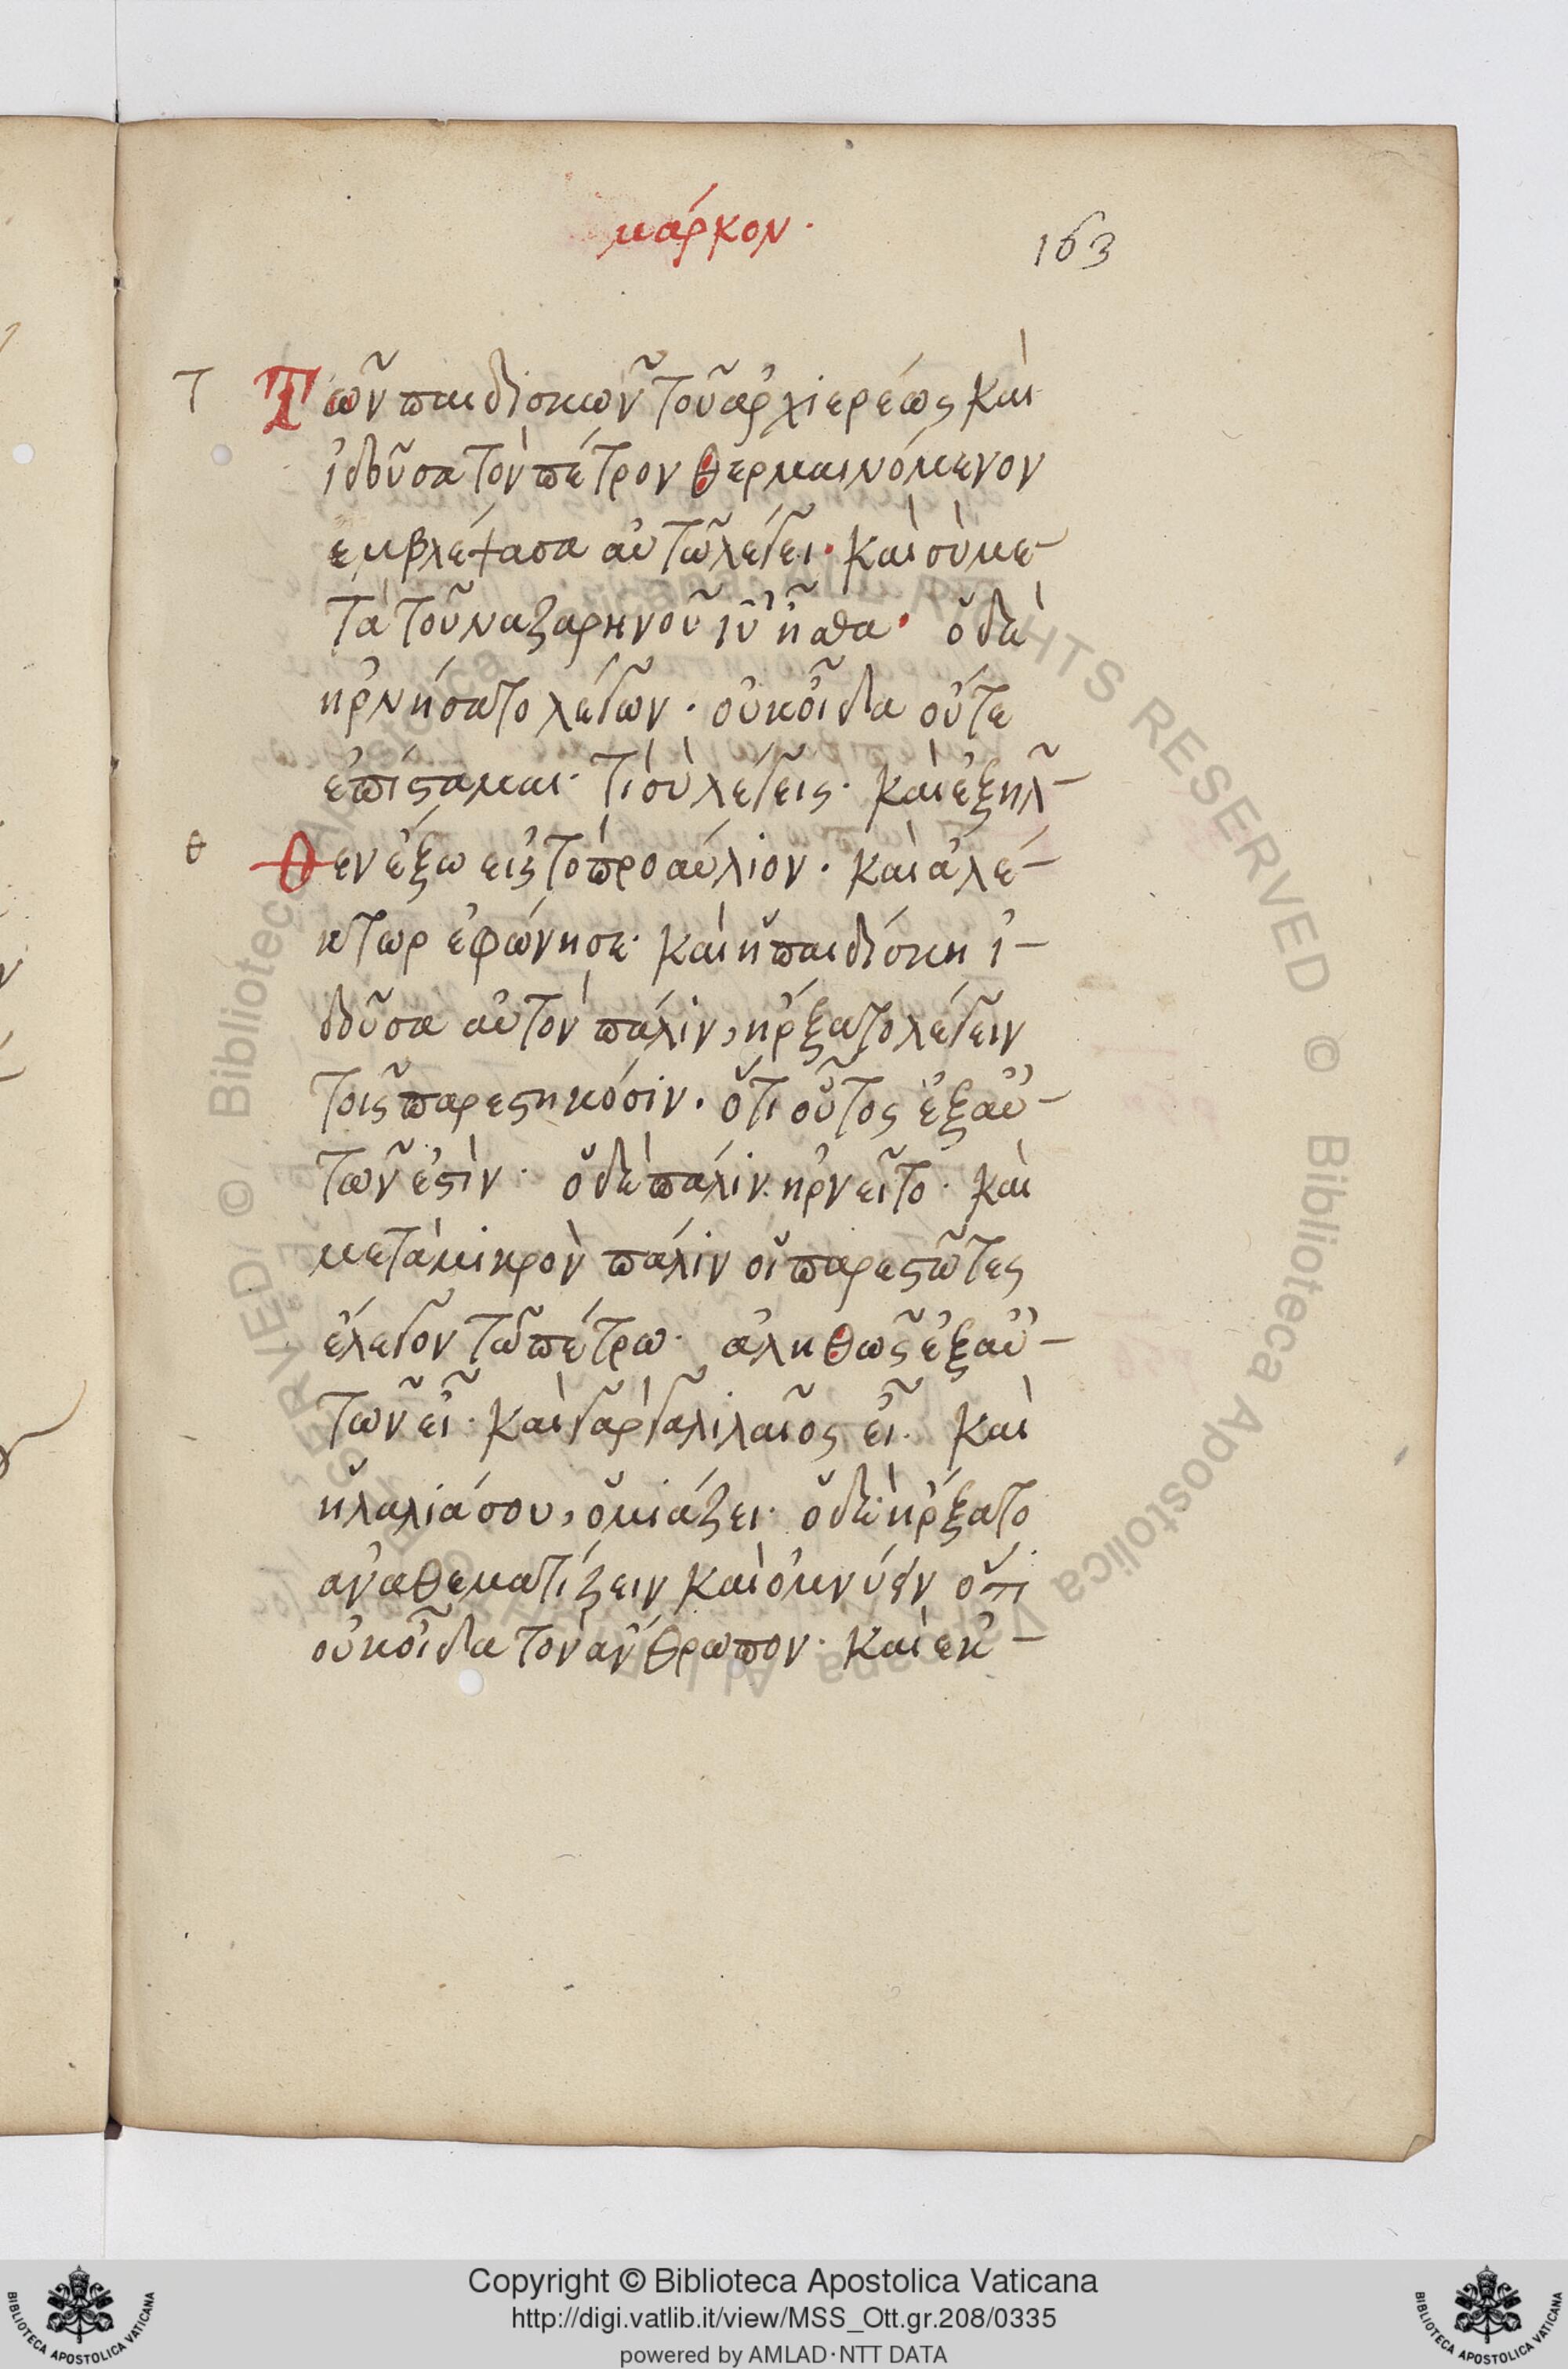 μάρκον·
163
τ
Τῶν παιδισκῶν τοῦ ἀρχιερέως καὶ
ἰδοῦσα τὸν πέτρον θερμαινόμενον
ἐμβλέψασα αὐτῶ λέγει· καὶ σὺ με-
τὰ τοῦ ναζαρηνοῦ ιυ ἦσθα· ὁ δὲ
ἠρνήσατο λέγων· οὐκ οἶδα οὔτε
ἐπίσταμαι· τί σὺ λέγεις· καὶ ἐξῆλ-
θ
Θεν ἔξω εἰς τὸ προαύλιον· καὶ ἀλέ-
κτωρ ἐφώνησε· καὶ ἡ παιδίσκη ἰ-
δοῦσα αὐτὸν πάλιν, ἤρξατο λέγειν
τοῖς παρεστηκόσιν· ὅτι οὗτος ἐξ αὐ-
τῶν ἐστὶν· ὁ δὲ πάλιν ἠρνεῖτο· καὶ
μετὰ μικρὸν πάλιν οἱ παρεστῶτες
ἔλεγον τῶ πέτρω· ἀληθῶς ἐξ αὐ-
τῶν εἶ· καὶ γὰρ γαλιλαῖος εἶ· καὶ
ἡ λαλιά σου, ὁμιάζει· ὁ δὲ ἤρξατο
ἀναθεματίζειν καὶ ὀμνύειν ὅτι
οὐκ οἶδα τὸν ἄνθρωπον· καὶ ἐκ-
© Biblioteca Apostolica Vaticana ALL RIGHTS RESERVED
Copyright © Biblioteca Apostolica Vaticana
http://digi.vatlib.it/view/MSS_Ott.gr.208/0335
powered by AMLAD·NTT DATA
BIBLIOTECA APOSTOLICA VATICANA
BIBLIOTECA APOSTOLICA VATICANA